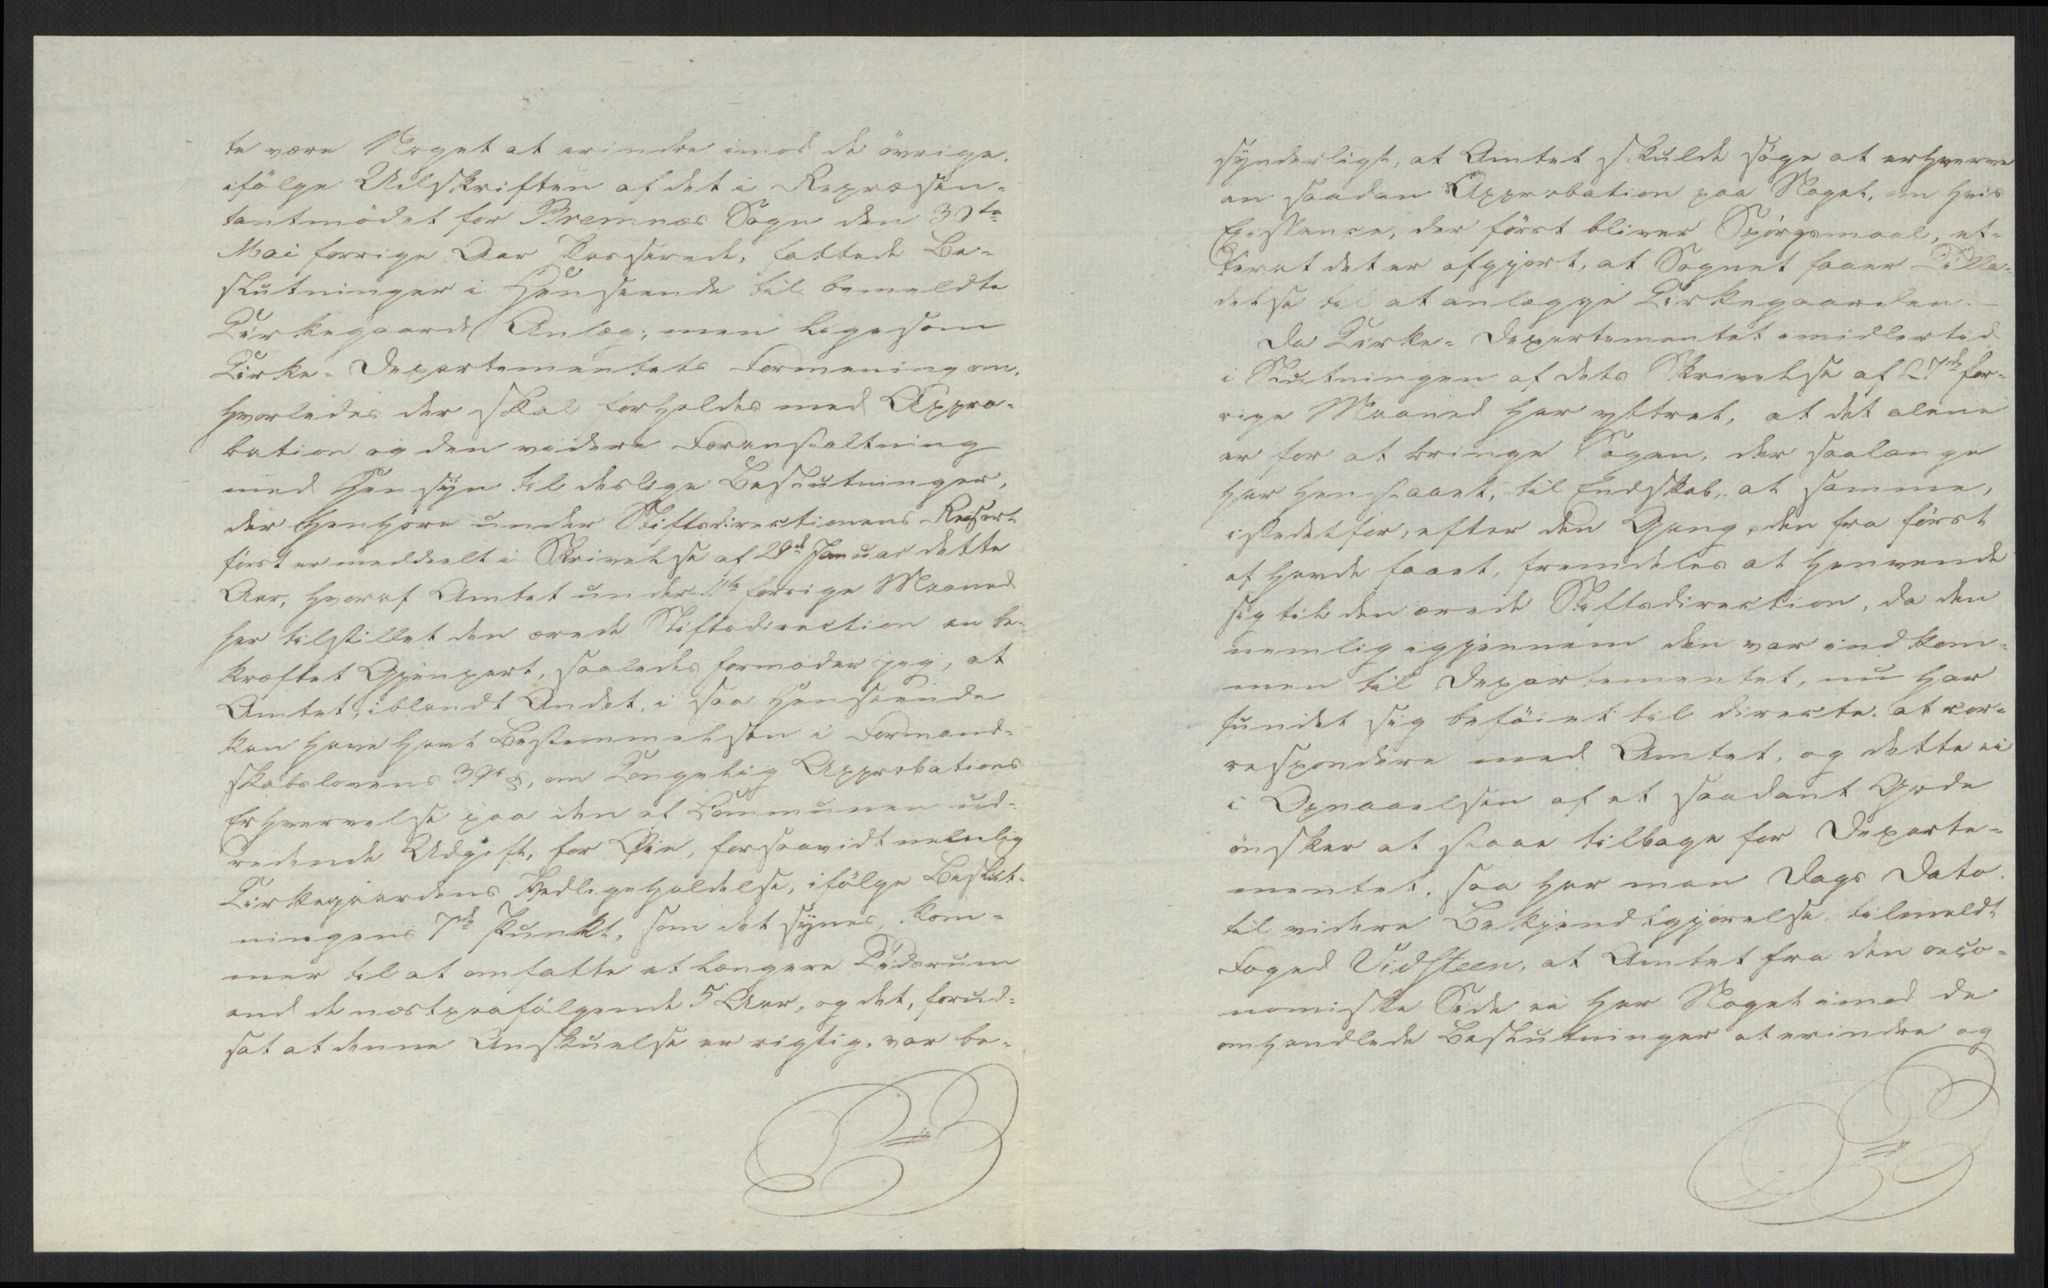 te være Noget at erindre imod de øvrige,
ifølge Udskriften af det i Repræsen-
tantmødet for Bremnæs Sogn den 30te
Mai forrige Aar Passerede, fattede Be-
slutninger i Henseende til bemeldte
Kirkegaards Anlæg; men ligesom
Kirke-Departementets Formening om,
hvorledes der skal forholdes med Appro-
bation og den videre Foranstaltning
med Hensyn til deslige Beslutninger,
der henhøre under Stiftsdirectionens Resort
først er meddeelt i Skrivelse af 29de Januar dette
Aar, hvoraf Amtet under 11te forrige Maaned
har tilstillet den ærede Stiftsdirection en be-
kræftet Gjenpart, saaledes formoder jeg, at
Amtet, iblandt Andet, i saa Henseende
kan have havt Bestemmelsen i Formand-
skabslovens 39te §, om Kongelig Approbations
Erhvervelse paa den af Communen ud-
redende Udgift, for Øie, forsaavidt nemlig
Kirkegaardens Vedligeholdelse, ifølge Beslut-
ningens 7de Punkt, som det synes, kom-
mer til at omfatte et længere Tidsrum
end de næstpaafølgende 5 Aar, og det, forud-
sat at denne Anskuelse er rigtig, var be-
synderligt, at Amtet skulde søge at erhverve
en saadan Approbation paa Noget, om hvis
Existence, der først bliver Spørgsmaal, ef-
terat det er afgjort, at Sognet faaer Tilla-
delse til at anlægge Kirkegaarden.
Da Kirke-Departementet imidlertid
i Slutningen af dets Skrivelse af 27de for-
rige Maaned har yttret, at det alene
er for at bringe Sagen, der saalænge
har henstaaet, til Endskab, at samme,
istedetfor, efter den Gang, den fra først
af havde faaet, fremdeles at henvende
sig til den ærede Stiftsdirection, da den
nemlig igjennem den var indkom-
men til Departementet, nu har
fundet sig beføiet til directe at cor-
respondere med Amtet, og dette ei
i Opnaaelsen af et saadant Gode
ønsker at staae tilbage for Departe-
mentet, saa har man Dags Dato
til videre Bekjendtgjørelse tilmeldt
Foged Vidsteen, at Amtet fra den oeco-
nomiske Side ei har Noget imod de
omhandlede Beslutninger at erindre og